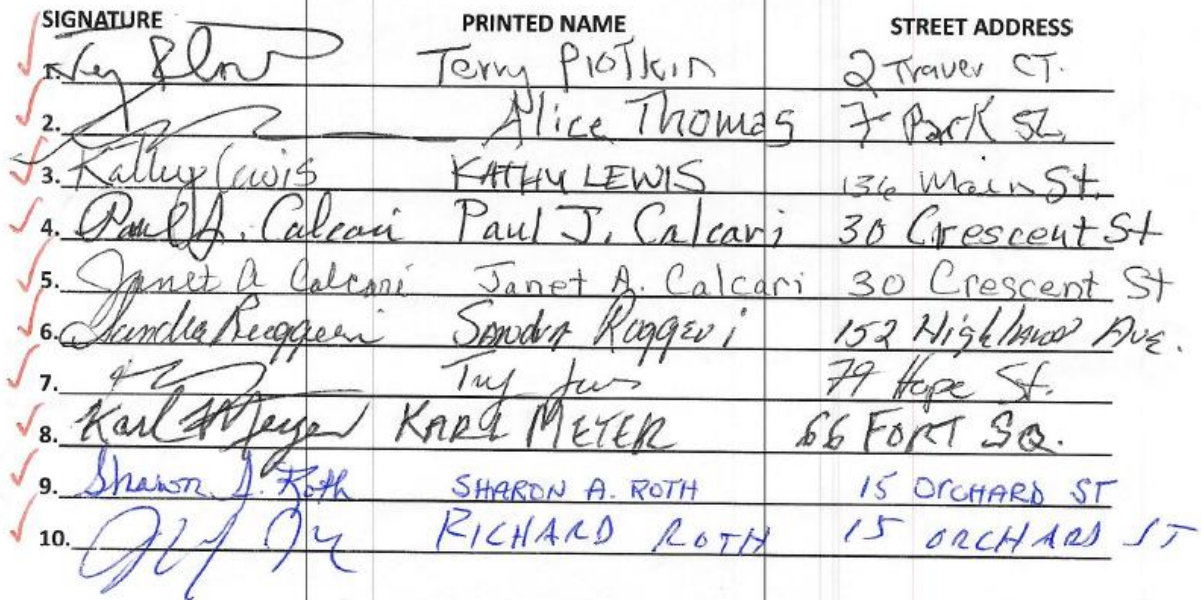 SIGNATURE PRINTED NAME STREET ADDRESS
1. Terry Plotkin 2 Traver CT.
2. Alice Thomas 7 Park St.
3. Kathy Lewis KATHY LEWIS 136 Main St.
4. Paul J. Calcari Paul J. Calcari 30 Crescent St
5. Janet A Calcari Janet A. Calcari 30 Crescent St
6. Sandra Ruggeri Sandra Ruggeri 152 Highland Ave.
7. 79 Hope St.
8. Karl Meyer KARL MEYER 66 FORT SQ.
9. Sharon A. Roth SHARON A. ROTH 15 ORCHARD ST
10. RICHARD ROTH 15 ORCHARD ST